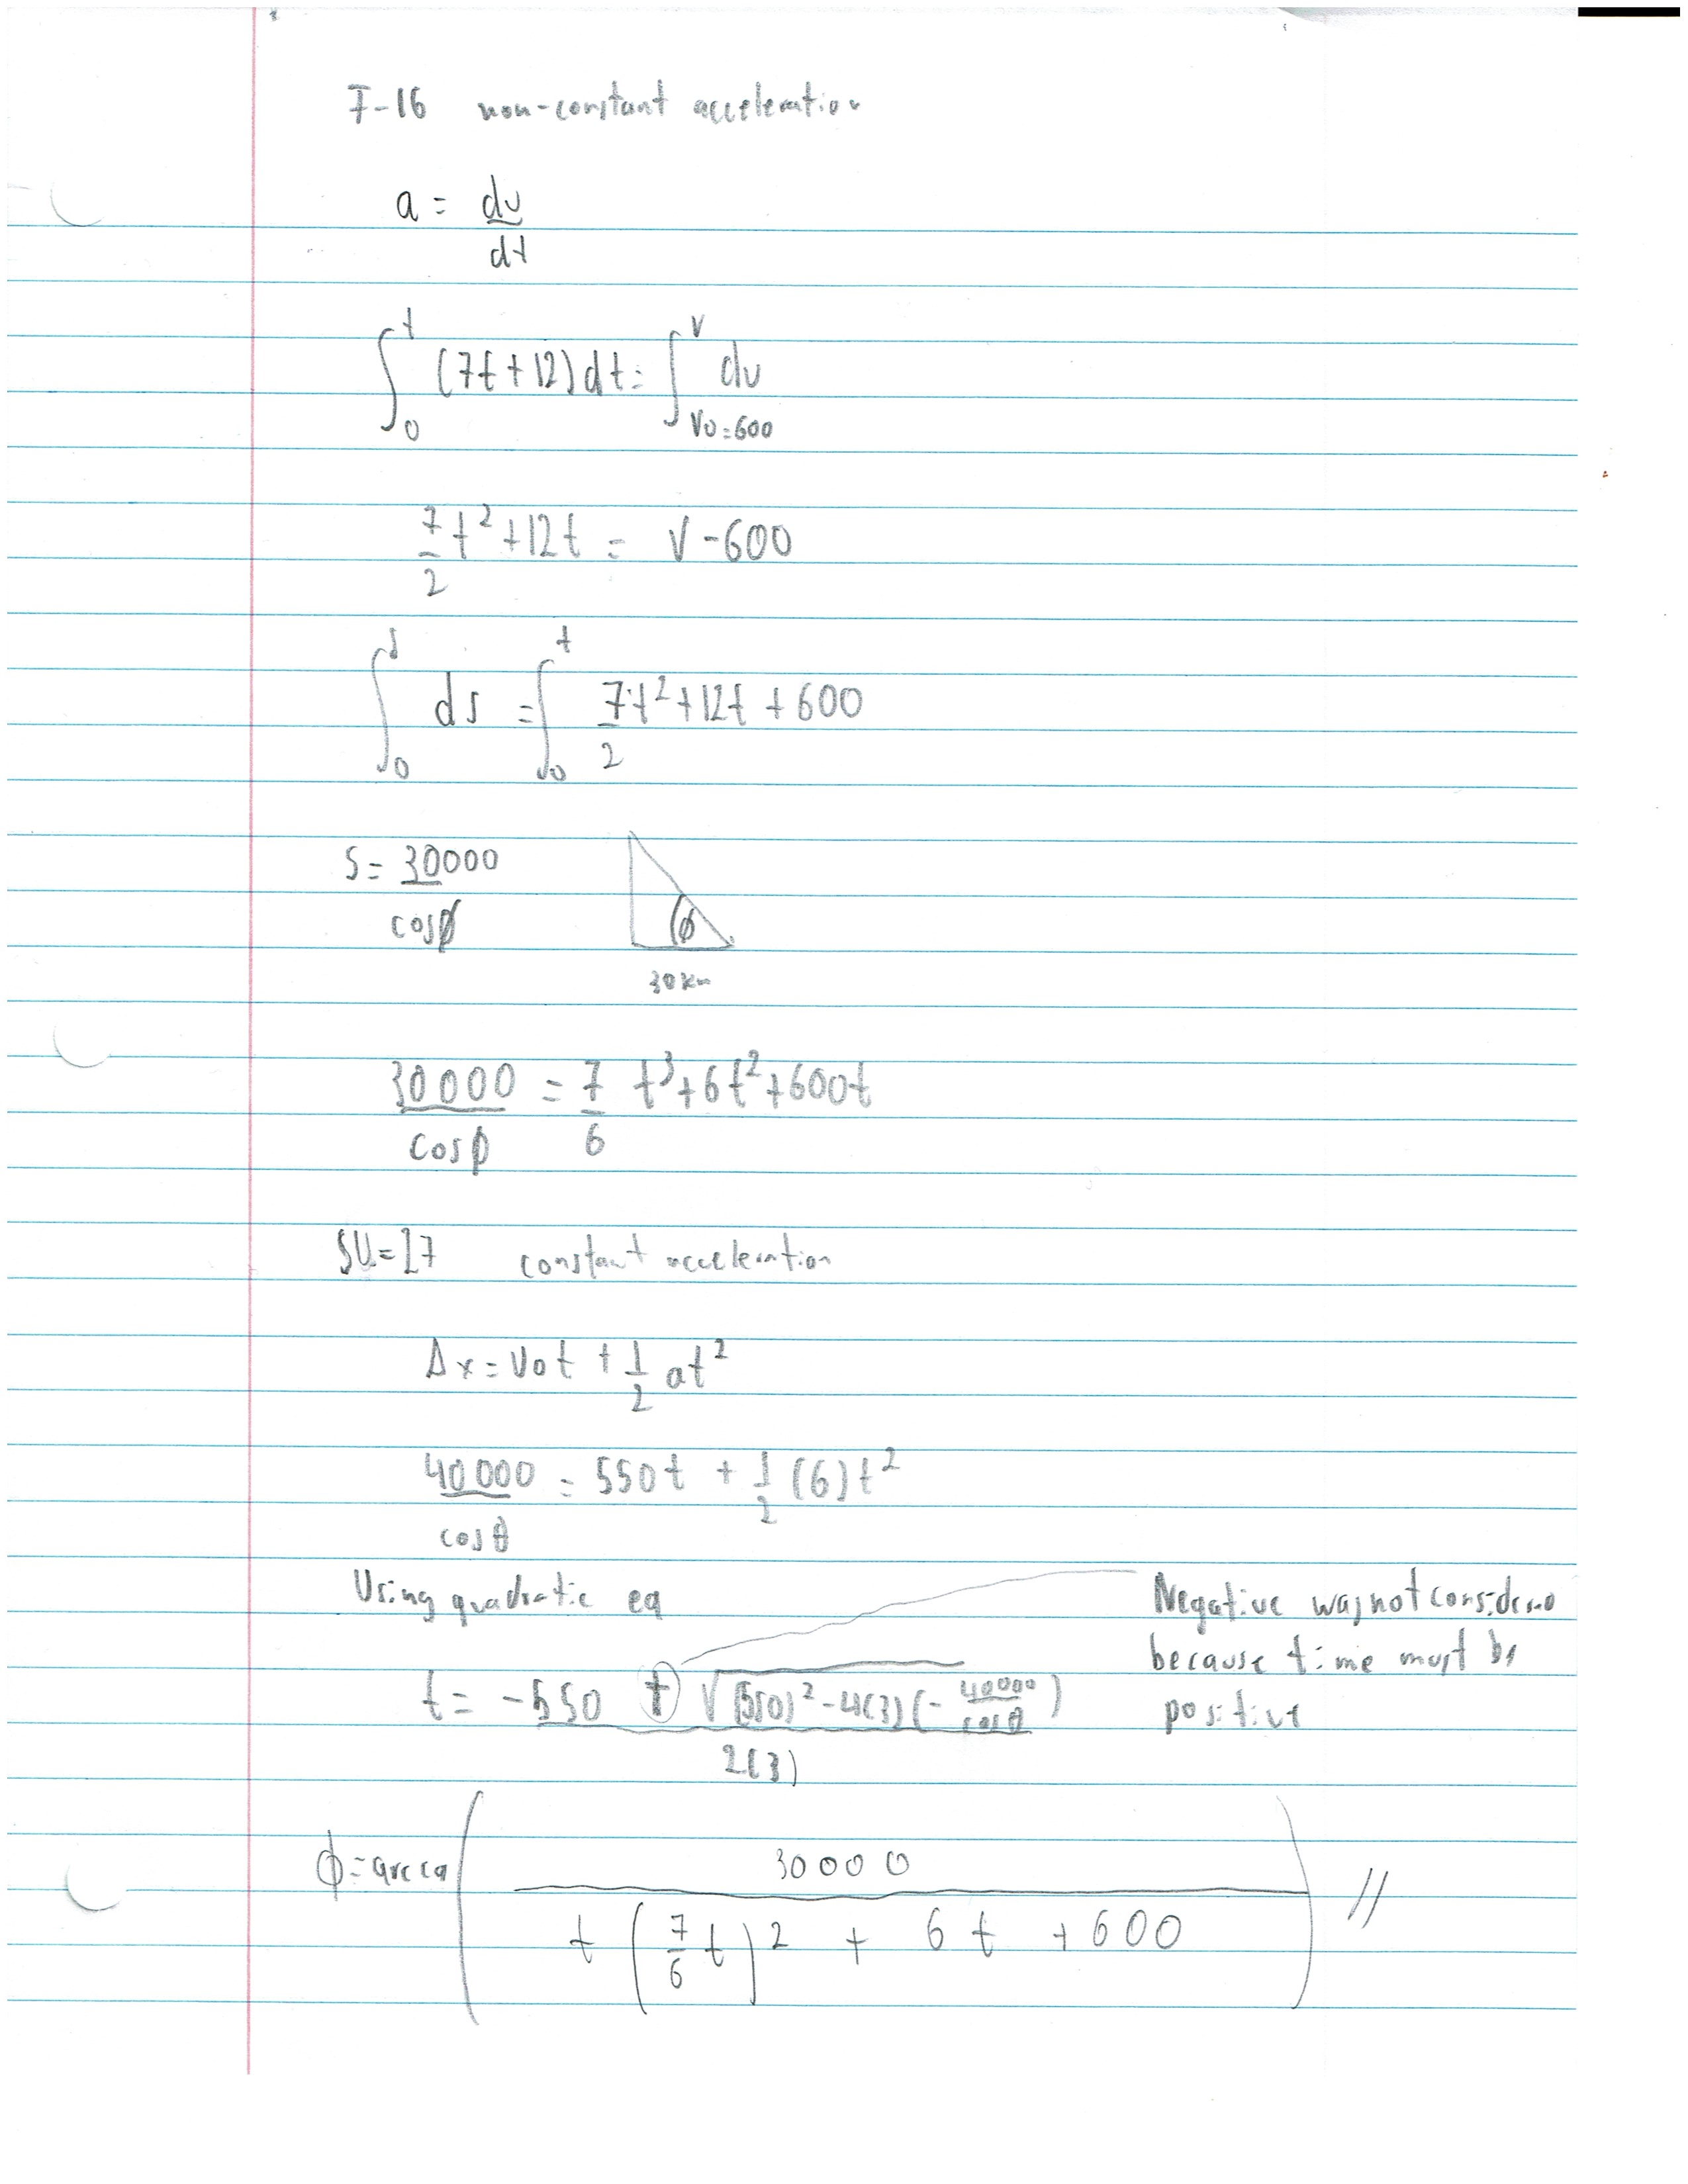 F-16 non-constant acceleration
a = dv
dt
∫ t 0 (7t+12)dt = ∫ v v0=600 dv
7/2 t² + 12t = v - 600
∫ d 0 ds = ∫ t 0 7/2 t² + 12t + 600
S = 30000
cosϕ
ϕ
30km
30000/cosϕ = 7/6 t³ + 6t² + 600t
SU=27 constant acceleration
Δx = v0t + 1/2 at²
40000/cosθ = 550t + 1/2 (6)t²
Using quadratic eq
t = -550 + √(550)² - 4(3)(-40000/cosθ)
2(3)
Negative was not considered
because time must be
positive
ϕ = arc co ( 30000
t (7/6 t)2 + 6t + 600 ) //